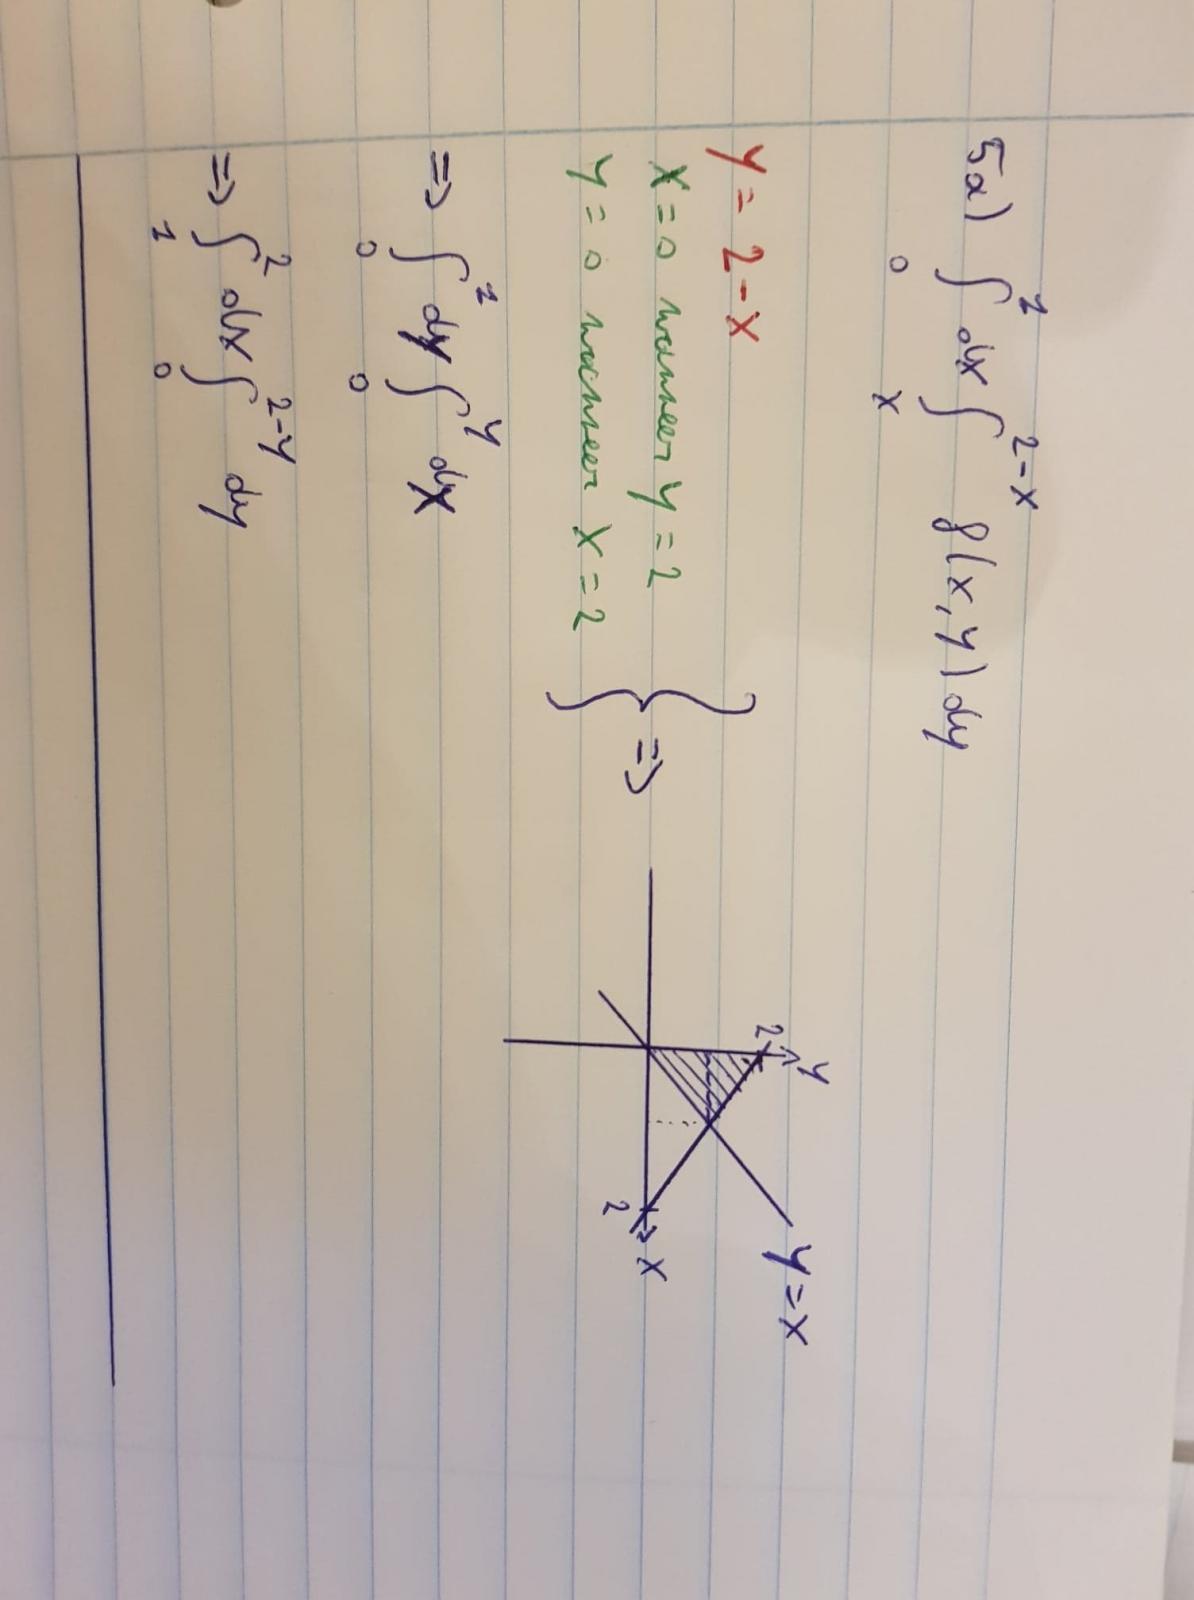 5a) ∫₀¹ dx ∫ₓ²⁻ˣ f(x,y) dy
y = 2-x
x = 0 wanneer y = 2
y = 0 wanneer x = 2
} =>
y
2
y = x
2
x
=> ∫₀¹ dy ∫₀ʸ dx
=> ∫₁² dx ∫₀²⁻ʸ dy